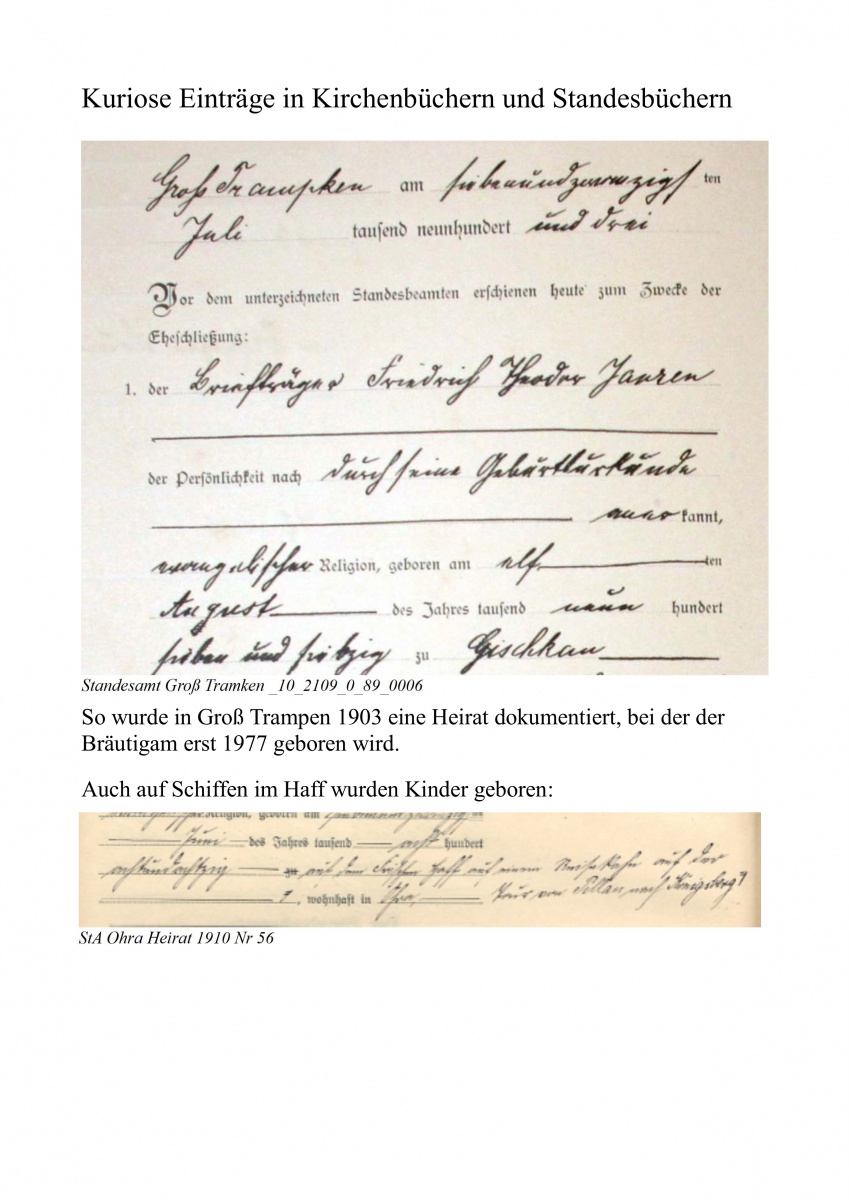 Kuriose Einträge in Kirchenbüchern und Standesbüchern
Groß Trampken am siebenundzwanzigsten
Juli tausend neunhundert und drei
Vor dem unterzeichneten Standesbeamten erschienen heute zum Zwecke der
Eheschließung:
1. der Briefträger Friedrich Theodor Janzen
der Persönlichkeit nach durch seine Geburtsurkunde
anerkannt,
evangelischer Religion, geboren am elften
August des Jahres tausend neun hundert
sieben und siebzig zu Gischkau
Standesamt Groß Tramken _10_2109_0_89_0006
So wurde in Groß Trampen 1903 eine Heirat dokumentiert, bei der der
Bräutigam erst 1977 geboren wird.
Auch auf Schiffen im Haff wurden Kinder geboren:
Religion, geboren am
Juni des Jahres tausend acht hundert
achtundachtzig auf dem Frischen Haff auf einem Reisekahn auf der
, wohnhaft in Ohra, Tour von Pillau nach Königsberg
StA Ohra Heirat 1910 Nr 56